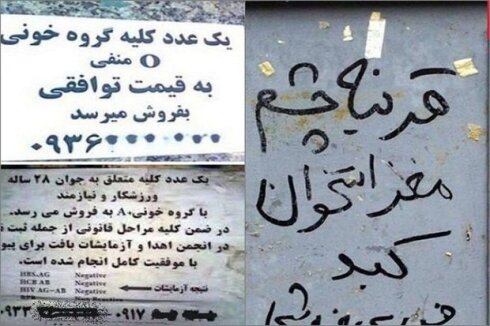 یک عدد کلیه گروه خونی
O منفی
به قیمت توافقی
بفروش میرسد
۰۹۳۶
یک عدد کلیه متعلق به جوان ۲۸ ساله
ورزشکار و نیازمند
با گروه خونی A+ به فروش می رسد.
در ضمن کلیه مراحل قانونی از جمله ثبت
در انجمن اهدا و آزمایشات بافت برای پیو
با موفقیت کامل انجام شده است.
HBS.AG Negative
HCB AB Negative
HIV AG-AB Negative
نتیجه آزمایشات
Negative
۰۹۳۳ ۰۹۱۷
قرنیه چشم
مغز استخوان
کبد